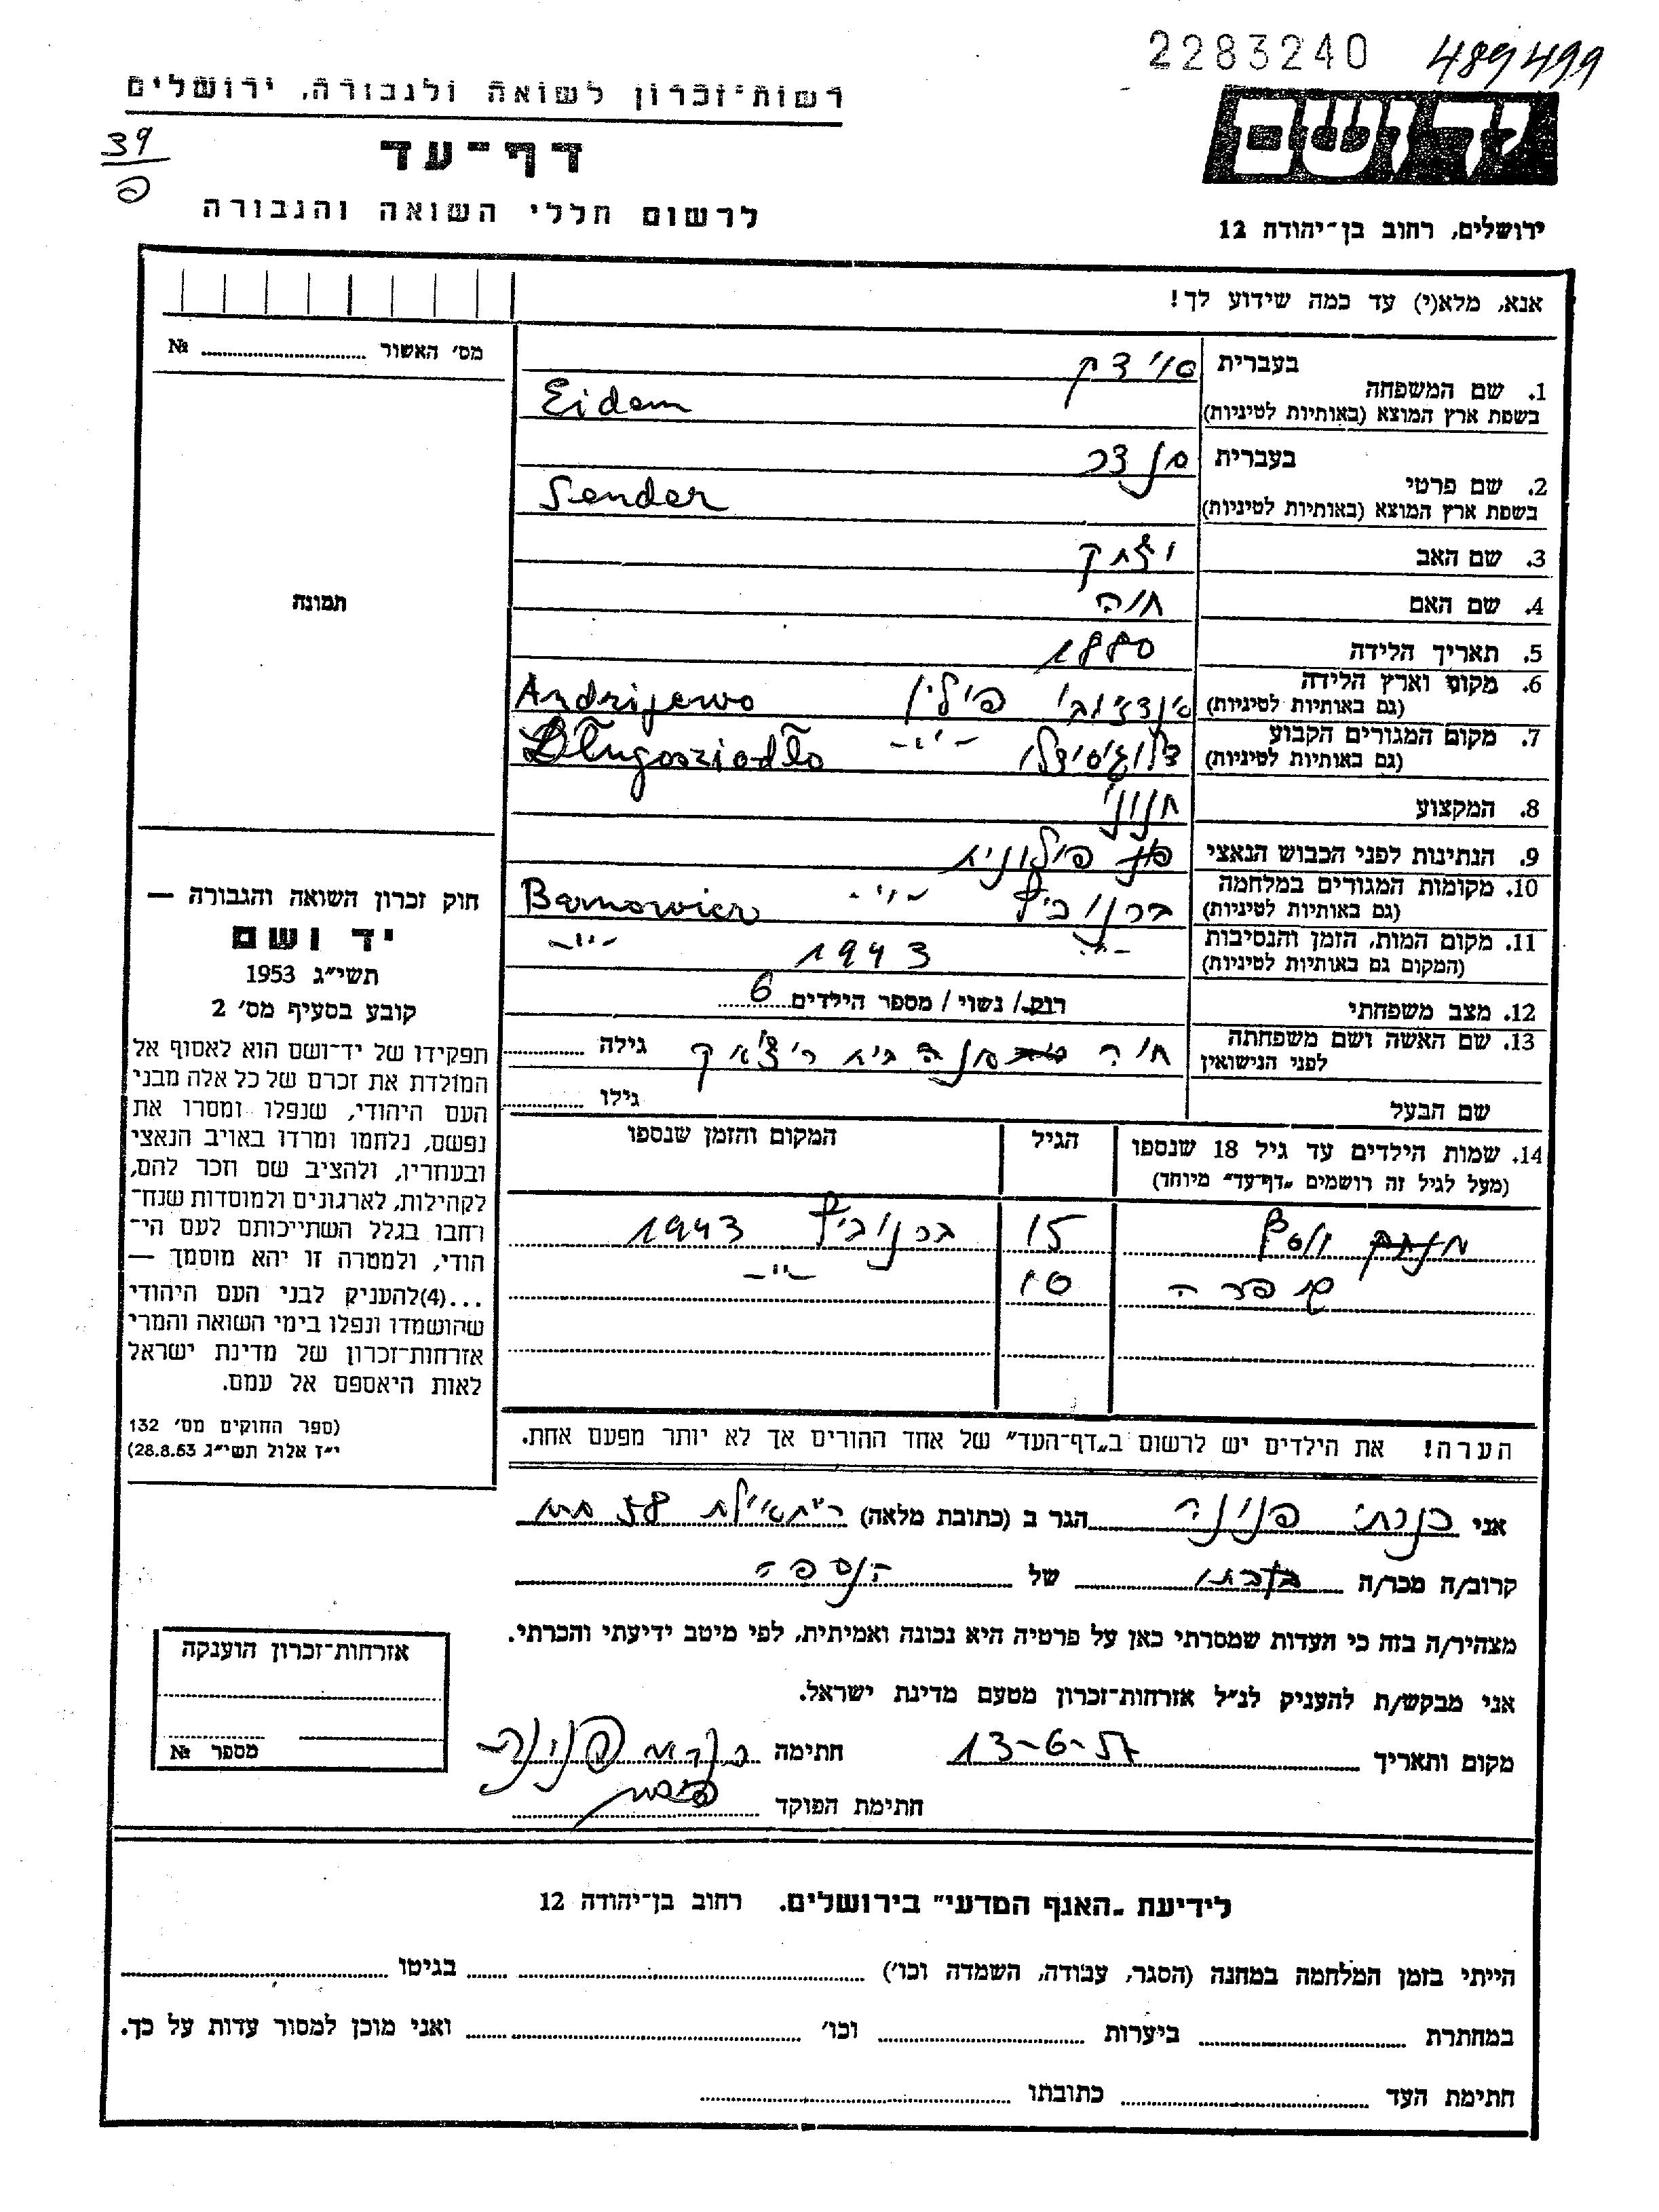 2283240 489499
רשות־זכרון לשואה ולגבורה, ירושלים
יד ושם
39
דף־עד
לרשום חללי השואה והגבורה
ירושלים, רחוב בן־יהודה 12
אנא, מלא(י) עד כמה שידוע לך!
מס׳ האשור № 
1. שם המשפחה
בעברית
בשפת ארץ המוצא (באותיות לטיניות) Eidem
2. שם פרטי
בעברית סנדר
בשפת ארץ המוצא (באותיות לטיניות) Sender
3. שם האב יצחק
4. שם האם חוה
תמונה
5. תאריך הלידה 1880
6. מקום וארץ הלידה
(גם באותיות לטיניות) פולין Andrijewo
7. מקום המגורים הקבוע
(גם באותיות לטיניות) -"- Długosziodło
8. המקצוע חנוני
9. הנתינות לפני הכבוש הנאצי פולונית
10. מקומות המגורים במלחמה
(גם באותיות לטיניות) ברנוביץ -"- Barnowicz
11. מקום המות, הזמן והנסיבות
(המקום גם באותיות לטיניות) -"- 1943 -"-
12. מצב משפחתי רוק/ נשוי / מספר הילדים 6
13. שם האשה ושם משפחתה
לפני הנישואין חיה בית גילה
שם הבעל גילו
14. שמות הילדים עד גיל 18 שנספו הגיל המקום והזמן שנספו
(מעל לגיל זה רושמים „דף־עד" מיוחד)
15 ברנוביץ 1943
שפרה 10 -"-
חוק זכרון השואה והגבורה —
יד ושם
תשי״ג 1953
קובע בסעיף מס׳ 2
תפקידו של יד־ושם הוא לאסוף אל
המולדת את זכרם של כל אלה מבני
העם היהודי, שנפלו ומסרו את
נפשם, נלחמו ומרדו באויב הנאצי
ובעוזריו, ולהציב שם וזכר להם,
לקהילות, לארגונים ולמוסדות שנח־
רחבו בגלל השתייכותם לעם הי־
הודי, ולמטרה זו יהא מוסמך —
...(4)להעניק לבני העם היהודי
שהושמדו ונפלו בימי השואה והמרי
אזרחות־זכרון של מדינת ישראל
לאות היאספם אל עמם.
(ספר החוקים מס׳ 132
י״ז אלול תשי״ג 28.8.53)
הערה! את הילדים יש לרשום ב„דף־העד" של אחד ההורים אך לא יותר מפעם אחת.
אני פנינה הגר ב (כתובת מלאה) 58
קרוב/ה מכר/ה של הנספה
מצהיר/ה בזה כי העדות שמסרתי כאן על פרטיה היא נכונה ואמיתית, לפי מיטב ידיעתי והכרתי.
אני מבקש/ת להעניק לנ״ל אזרחות־זכרון מטעם מדינת ישראל.
מקום ותאריך 13-6-57 חתימה פנינה
חתימת הפוקד
אזרחות־זכרון הוענקה
מספר №
לידיעת „האגף המדעי" בירושלים. רחוב בן־יהודה 12
הייתי בזמן המלחמה במחנה (הסגר, עבודה, השמדה וכו׳) בגיטו
במחתרת ביערות וכו׳ ואני מוכן למסור עדות על כך.
חתימת העד כתובתו